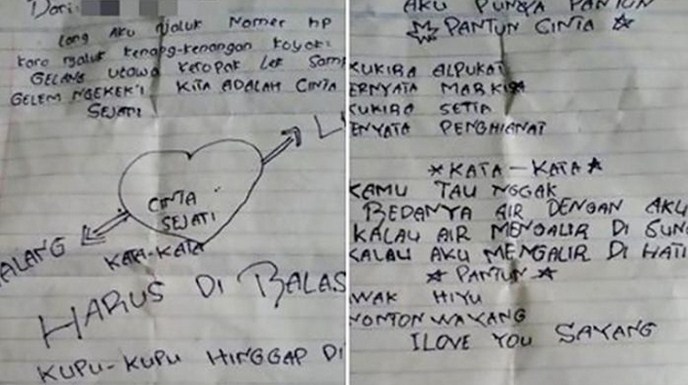 Dari:
Lang Aku njaluk Nomer hp
karo njaluk kenang-kenangan koyok:
GELANG utowo ketopak Lek Samp
GELEM NGEKEK'I KITA ADALAH CINTA
SEJATI
CINTA
SEJATI
ALANG
KATA-KATA
HARUS DI BALAS
KUPU-KUPU HINGGAP DI
AKU PUNYA PANTUN
PANTUN CINTA
KUKIRA ALPUKAT
ERNYATA MARKISA
KUKIRA SETIA
ENYATA PENGHIANAT
KATA-KATA
KAMU TAU NGGAK
BEDANYA AIR DENGAN AKU
KALAU AIR MENGALIR DI SUN
KALAU AKU MENGALIR DI HATI
PANTUN
AWAK HIYU
NONTON WAYANG
I LOVE YOU SAYANG